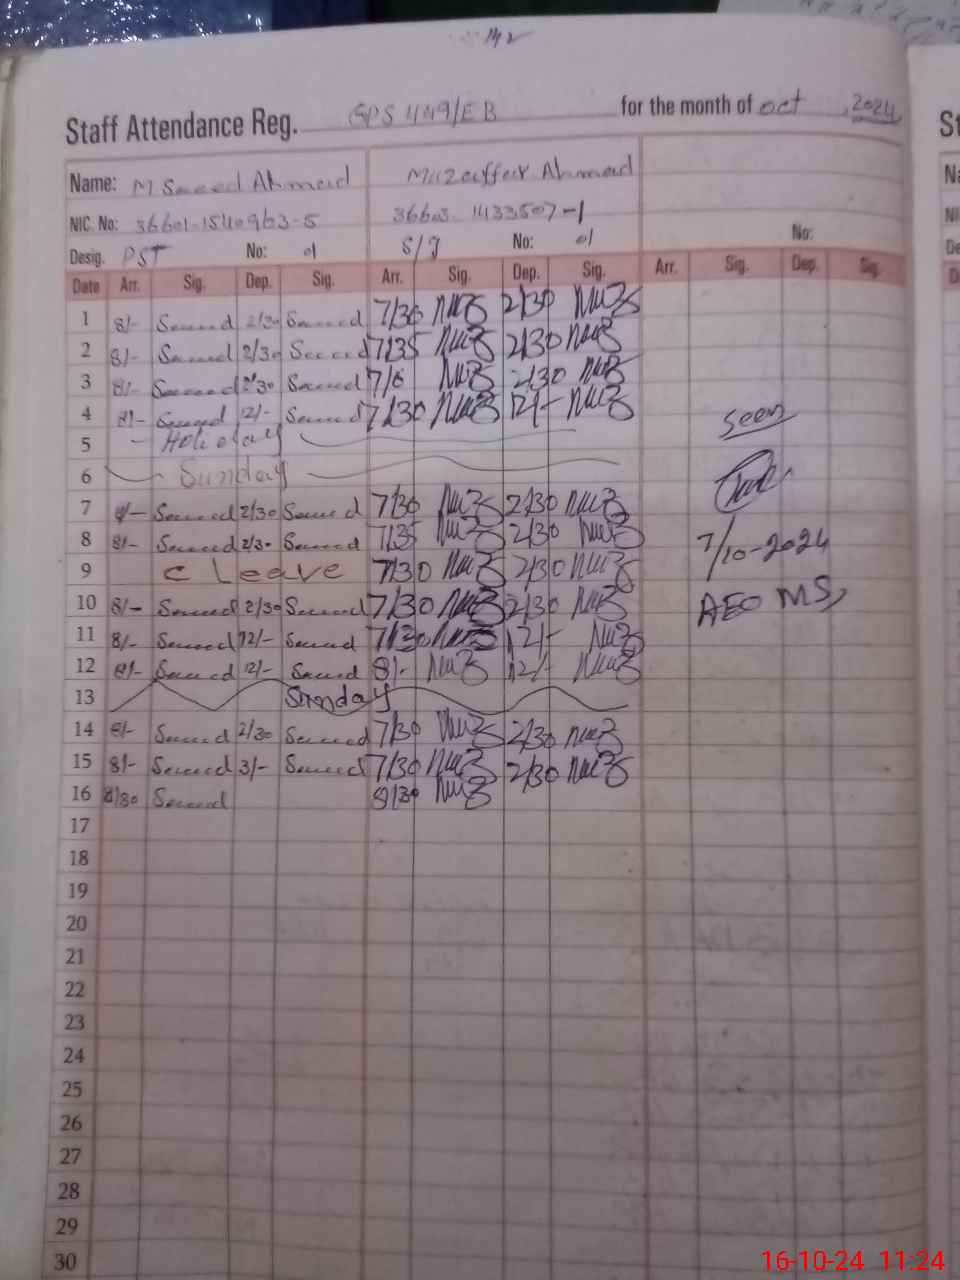 142
Staff Attendance Reg. GPS 1149/EB for the month of oct, 2024
Name: M Saeed Ahmad Muzaffar Ahmad
NIC. No: 36601-1540963-5 36603-1433507-1
Desig. PST No: 01 S/g No: 01 No:
Date Arr. Sig. Dep. Sig. Arr. Sig. Dep. Sig. Arr. Sig. Dep. Sig.
1 8/- Saeed 2/30 Saeed 7/30 Muz 2/30 Muz
2 8/- Saeed 2/30 Saeed 7/35 Muz 2/30 Muz
3 8/- Saeed 2/30 Saeed Muz 2/30 Muz
4 8/- Saeed 12/- Saeed 7/30 Muz 12/- Muz
seen
5 - Holiday
6 Sunday
7 8/- Saeed 2/30 Saeed 7/30 Muz 2/30 Muz
8 8/- Saeed 2/30 Saeed 7/35 Muz 2/30 Muz
7/10-2024
9 c Leave 7/30 Muz 2/30 Muz
10 8/- Saeed 2/30 Saeed 7/30 Muz 2/30 Muz
AEO MS
11 8/- Saeed 12/- Saeed 7/30 Muz 12/- Muz
12 8/- Saeed 12/- Saeed 8/- Muz 12/- Muz
13 Sunday
14 8/- Saeed 2/30 Saeed 7/30 Muz 2/30 Muz
15 8/- Saeed 3/- Saeed 7/30 Muz 2/30 Muz
16 8/30 Saeed 8/30 Muz
17
18
19
20
21
22
23
24
25
26
27
28
29
30
16-10-24 11:24